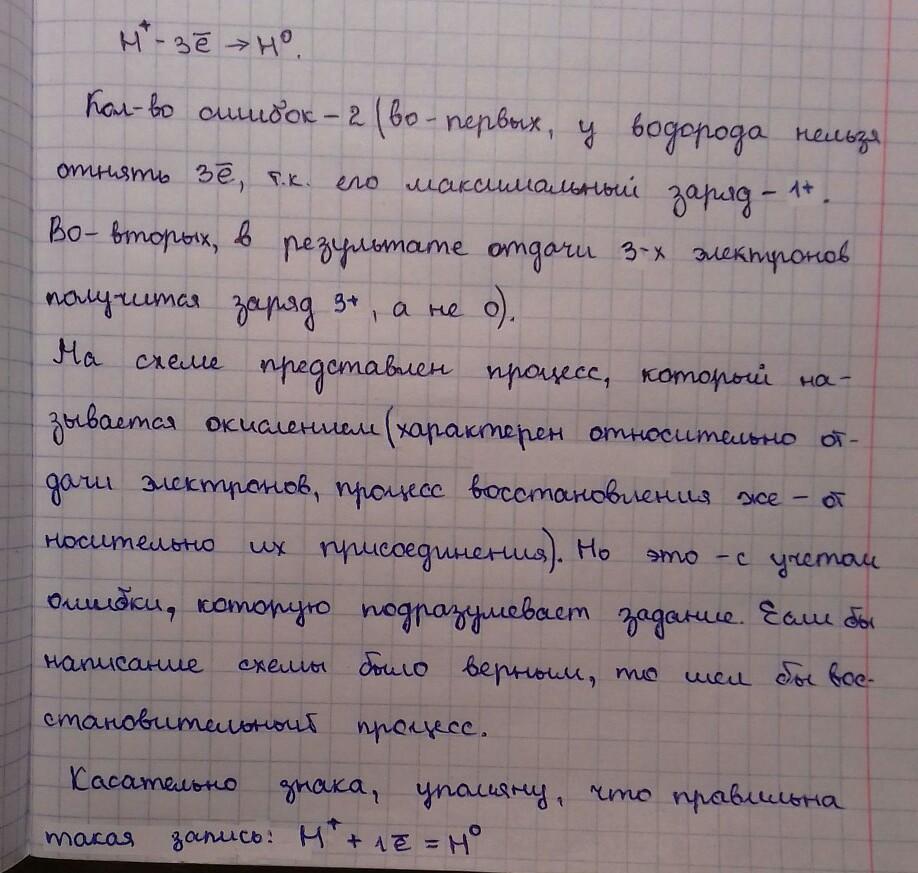 H⁺ - 3ē → H⁰.
Кол-во ошибок – 2 (во-первых, у водорода нельзя
отнять 3ē, т.к. его максимальный заряд – 1+.
Во-вторых, в результате отдачи 3-х электронов
получится заряд 3+, а не 0).
На схеме представлен процесс, который на-
зывается окислением (характерен относительно от-
дачи электронов, процесс восстановления же – от
носительно их присоединения). Но это – с учетом
ошибки, которую подразумевает задание. Если бы
написание схемы было верным, то шел бы вос-
становительный процесс.
Касательно знака, упомяну, что правильна
такая запись: H⁺ + 1ē = H⁰